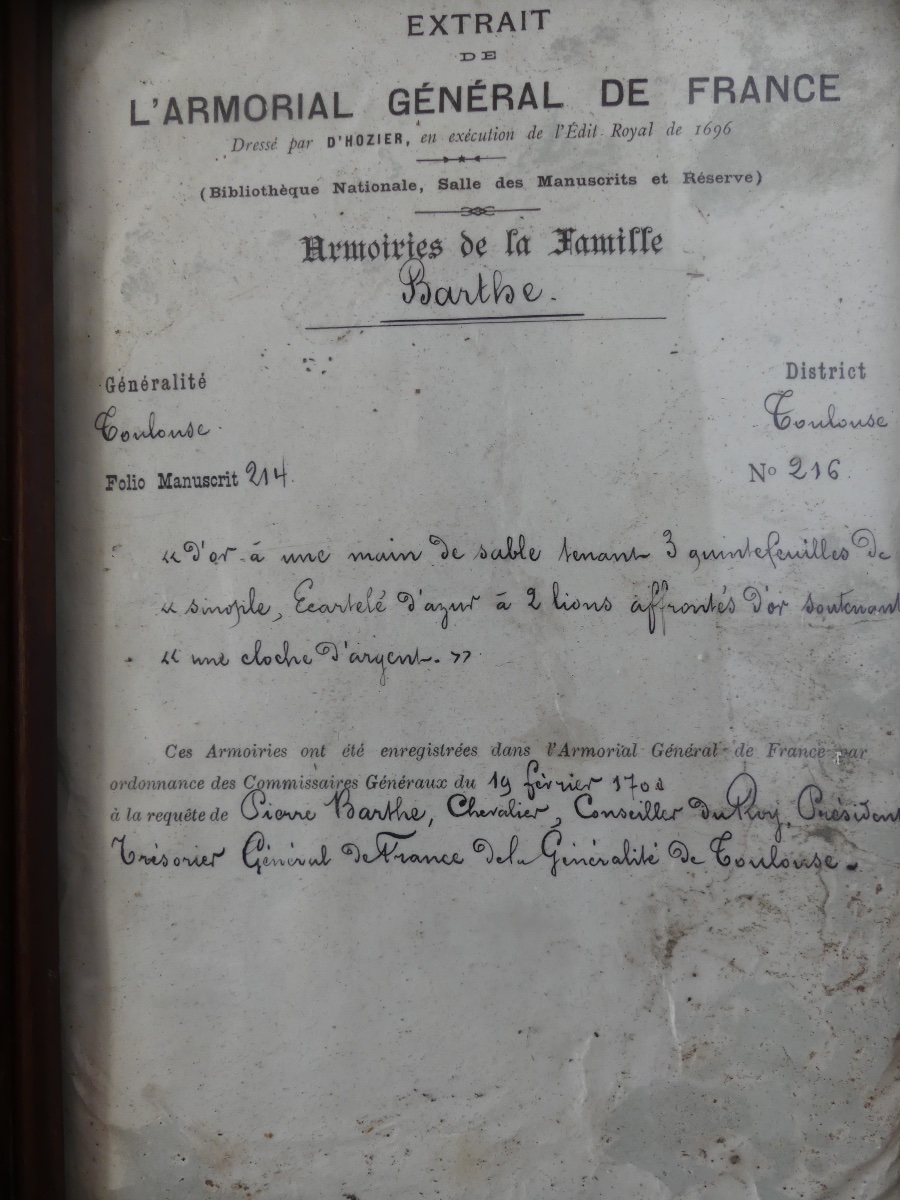 EXTRAIT
DE
L'ARMORIAL GÉNÉRAL DE FRANCE
Dressé par D'HOZIER, en exécution de l'Édit Royal de 1696
(Bibliothèque Nationale, Salle des Manuscrits et Réserve)
Armoiries de la Famille
Barthe.
Généralité District
Toulouse. Toulouse
Folio Manuscrit 214. No 216
« d'or à une main de sable tenant 3 quintefeuilles de
« sinople, Ecartelé d'azur à 2 lions affrontés d'or soutenant
« une cloche d'argent. »
Ces Armoiries ont été enregistrées dans l'Armorial Général de France par
ordonnance des Commissaires Généraux du 19 février
à la requête de Pierre Barthe, Chevalier, Conseiller du Roy, Président
Trésorier Général de France de la Généralité de Toulouse.